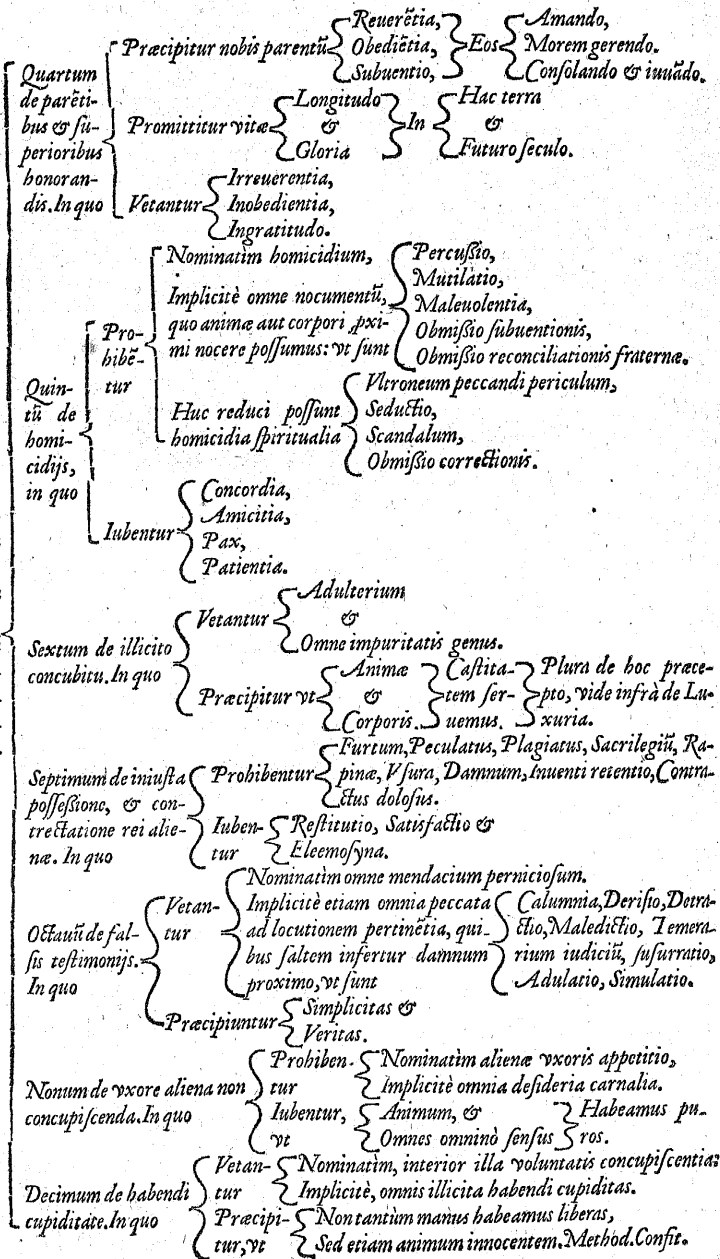 Quartum
de parẽti-
bus & su-
perioribus
honoran-
dis. In quo
Præcipitur nobis parentũ
Reuerẽtia,
Obediẽtia,
Subuentio,
Eos
Amando,
Morem gerendo.
Consolando & iuuãdo.
Promittitur vitæ
Longitudo
&
Gloria
In
Hac terra
&
Futuro seculo.
Vetantur
Irreuerentia,
Inobedientia,
Ingratitudo.
Quin-
tũ de
homi-
cidijs,
in quo
Pro-
hibẽ-
tur
Nominatìm homicidium,
Implicitè omne nocumentũ,
quo animæ aut corpori ꝓxi-
mi nocere possumus: vt sunt
Percussio,
Mutilatio,
Maleuolentia,
Obmissio subuentionis,
Obmissio reconciliationis fraternæ.
Huc reduci possunt
homicidia spiritualia
Vltroneum peccandi periculum,
Seductio,
Scandalum,
Obmissio correctionis.
Iubentur
Concordia,
Amicitia,
Pax,
Patientia.
Sextum de illicito
concubitu. In quo
Vetantur
Adulterium
&
Omne impuritatis genus.
Præcipitur vt
Animæ
&
Corporis.
Castita-
tem ser-
uemus.
Plura de hoc præce-
pto, vide infrà de Lu-
xuria.
Septimum de iniusta
possessione, & con-
trectatione rei alie-
næ. In quo
Prohibentur
Furtum, Peculatus, Plagiatus, Sacrilegiũ, Ra-
pinæ, Vsura, Damnum, Inuenti retentio, Contra-
ctus dolosus.
Iuben-
tur
Restitutio, Satisfactio &
Eleemosyna.
Octauũ de fal-
sis testimonijs.
In quo
Vetan-
tur
Nominatìm omne mendacium perniciosum.
Implicitè etiam omnia peccata
ad locutionem pertinẽtia, qui-
bus saltem infertur damnum
proximo, vt sunt
Calumnia, Derisio, Detra-
ctio, Maledictio, Temera-
rium iudiciũ, susurratio,
Adulatio, Simulatio.
Præcipiuntur
Simplicitas &
Veritas.
Nonum de vxore aliena non
concupiscenda. In quo
Prohiben-
tur
Nominatìm alienæ vxoris appetitio,
Implicitè omnia desideria carnalia.
Iubentur,
vt
Animum, &
Omnes omninò sensus
Habeamus pu-
ros.
Decimum de habendi
cupiditate. In quo
Vetan-
tur
Nominatìm, interior illa voluntatis concupiscentia:
Implicitè, omnis illicita habendi cupiditas.
Præcipi-
tur, vt
Non tantùm manus habeamus liberas,
Sed etiam animum innocentem. Method. Confit.